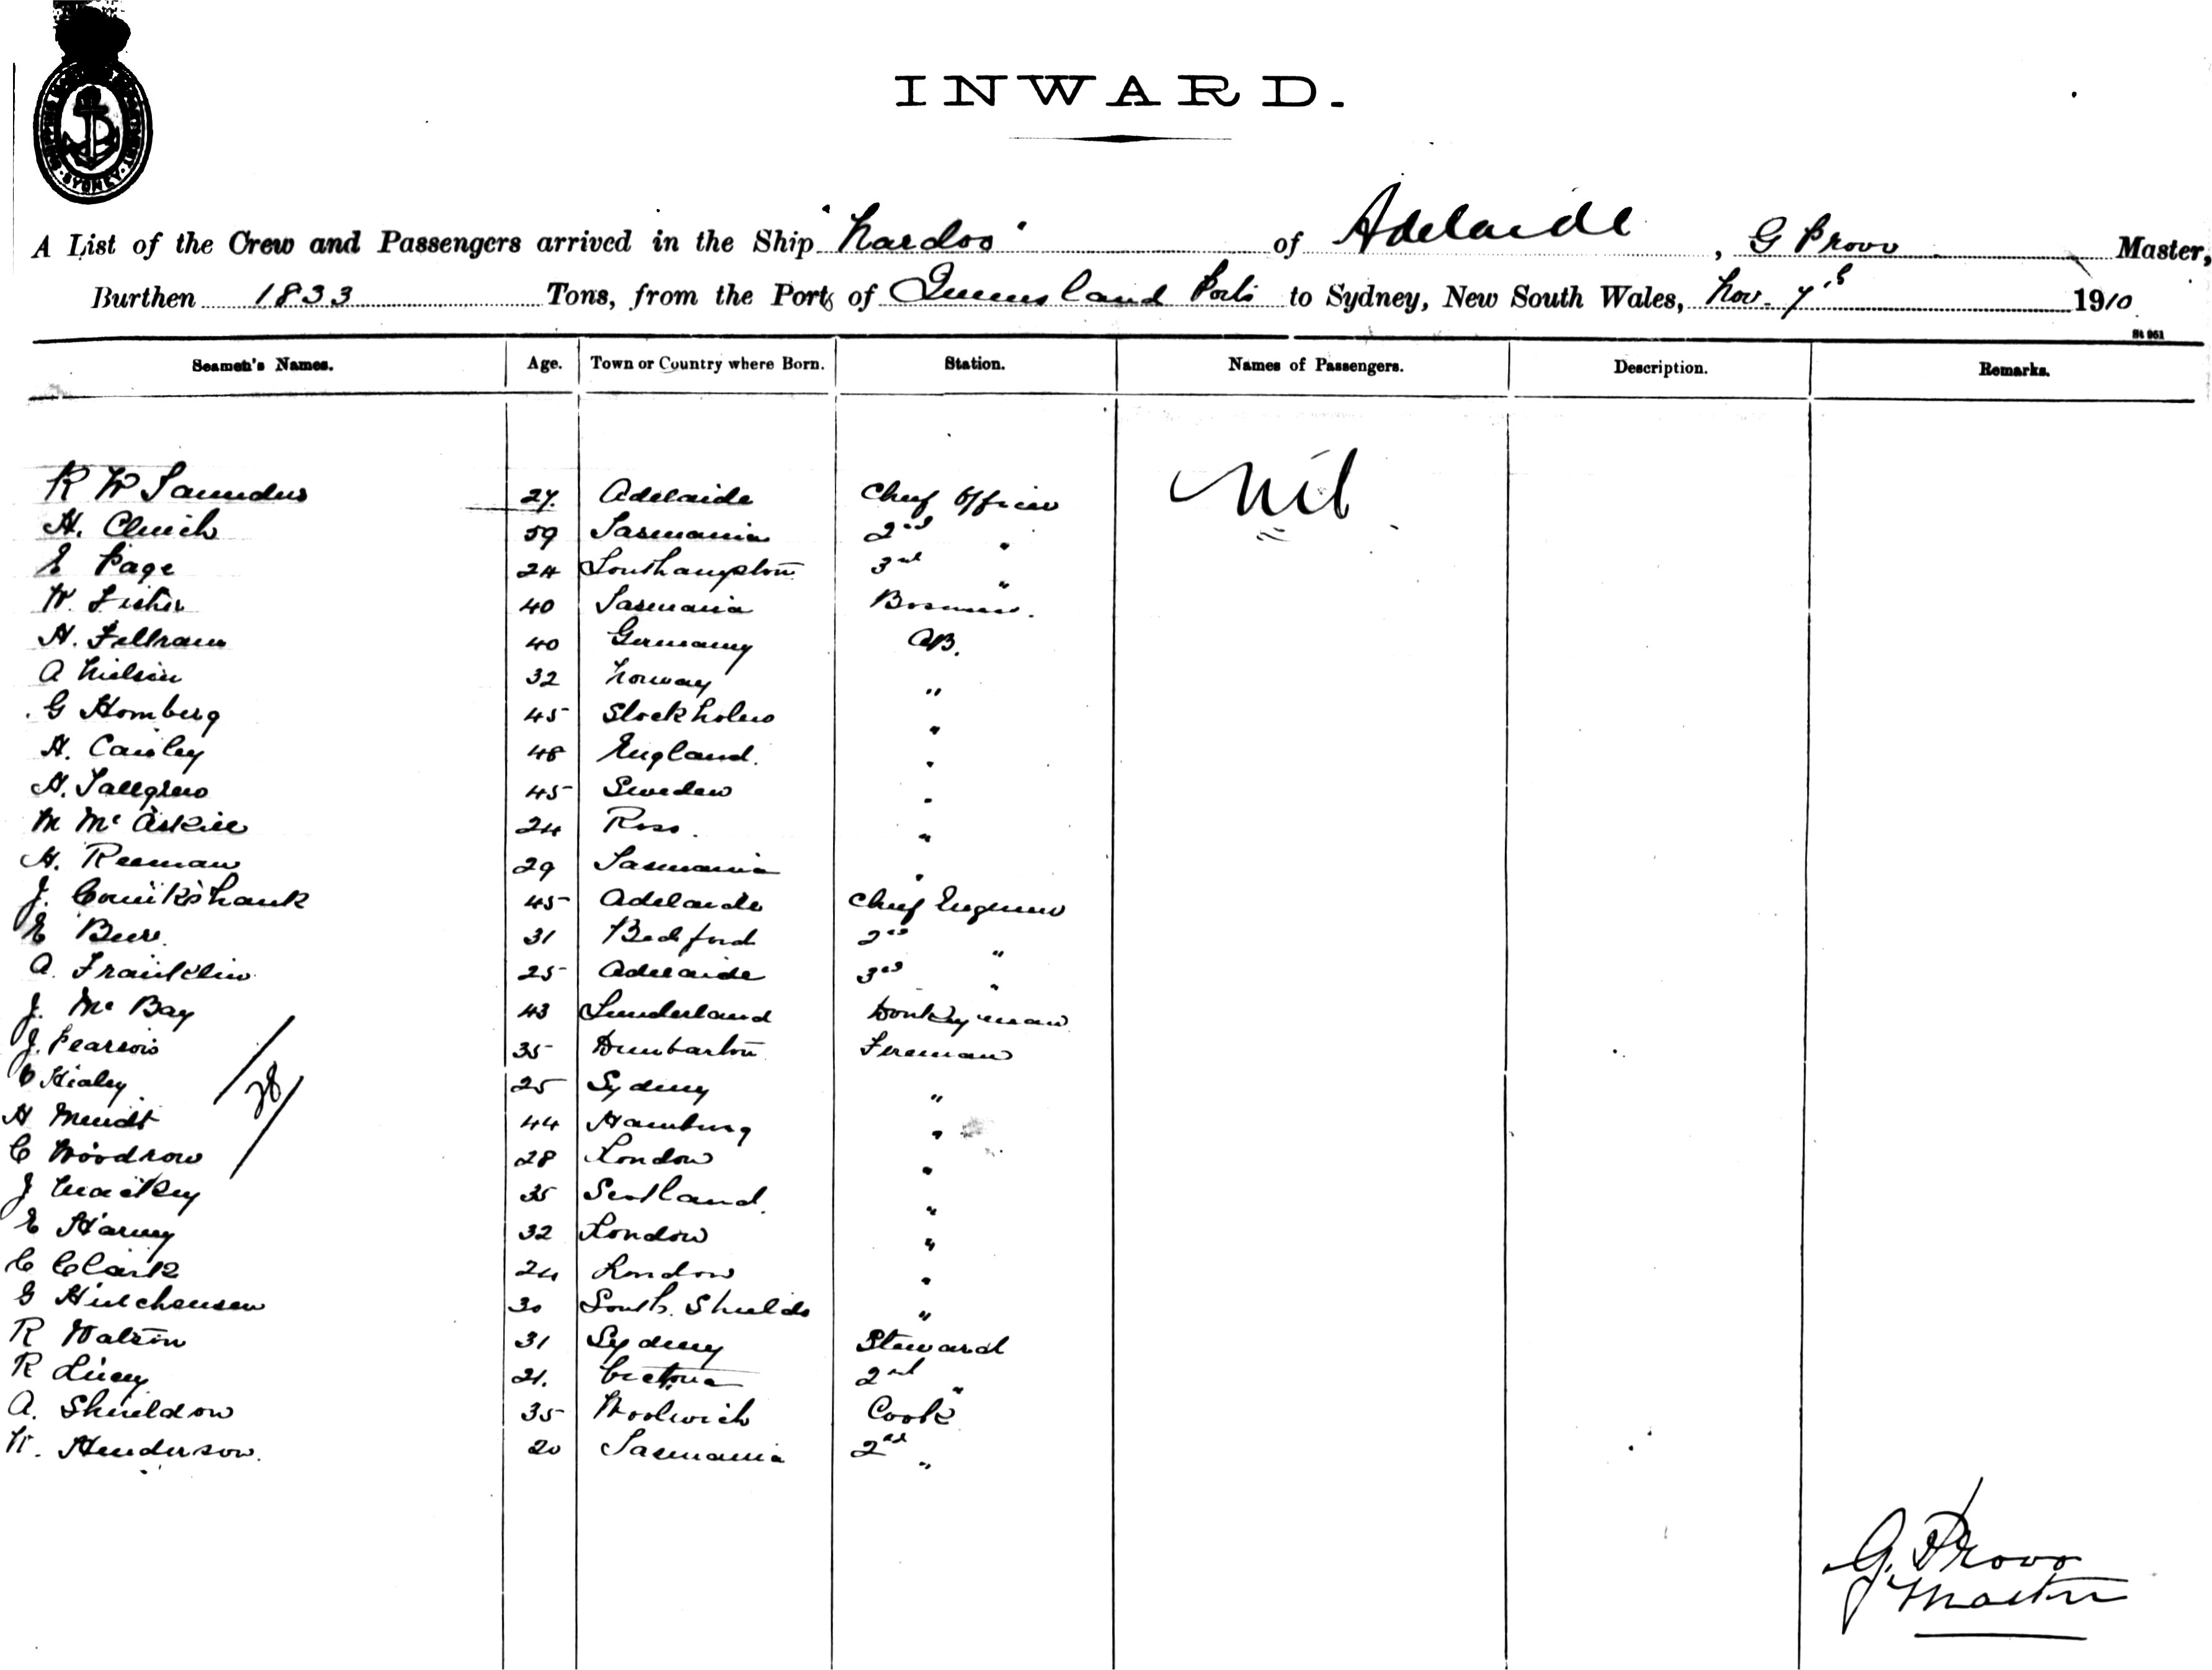 SYDNEY
INWARD.
A List of the Crew and Passengers arrived in the Ship "Nardoo" of Adelaide, G Provo Master,
Burthen 1833 Tons, from the Ports of Queensland Ports to Sydney, New South Wales, Nov. 7th 1910
St 961
Seamen's Names. Age. Town or Country where Born. Station. Names of Passengers. Description. Remarks.
R W Saunders 27. Adelaide Chief Officer Nil
H. 59 Tasmania 2nd "
E Page 24 Southampton 3rd "
W. Fisher 40 Tasmania Bosmun.
H. Feltram 40 Germany AB.
A Nielsen 32 Norway "
G Homberg 45 Stockholm "
H. Causley 48 England. "
H. Tallgren 45 Sweden "
M McAskill 24 Ross. "
H. Reeman 29 Tasmania "
J. Cruikshank 45 Adelaide Chief Engineer
E Burr. 31 Bedford 2nd "
A. Franklin 25 Adelaide 3rd "
J. McBay 43 Sunderland Donkeyman
J. Pearson 35 Dumbarton Fireman
Healey 25 Sydney "
28
H Mundt 44 Hamburg "
C Woodrow 28 London "
J Mackey 35 Scotland. "
E Harvey 32 London "
C Clark 24 London "
G Hutchensen 30 South. Shields "
R Watson 31 Sydney Steward
R Livey 21. Victoria 2nd "
A. Sheildon 35 Woolwich Cook
W. Henderson. 20 Tasmania 2nd "
G. Provo
Master